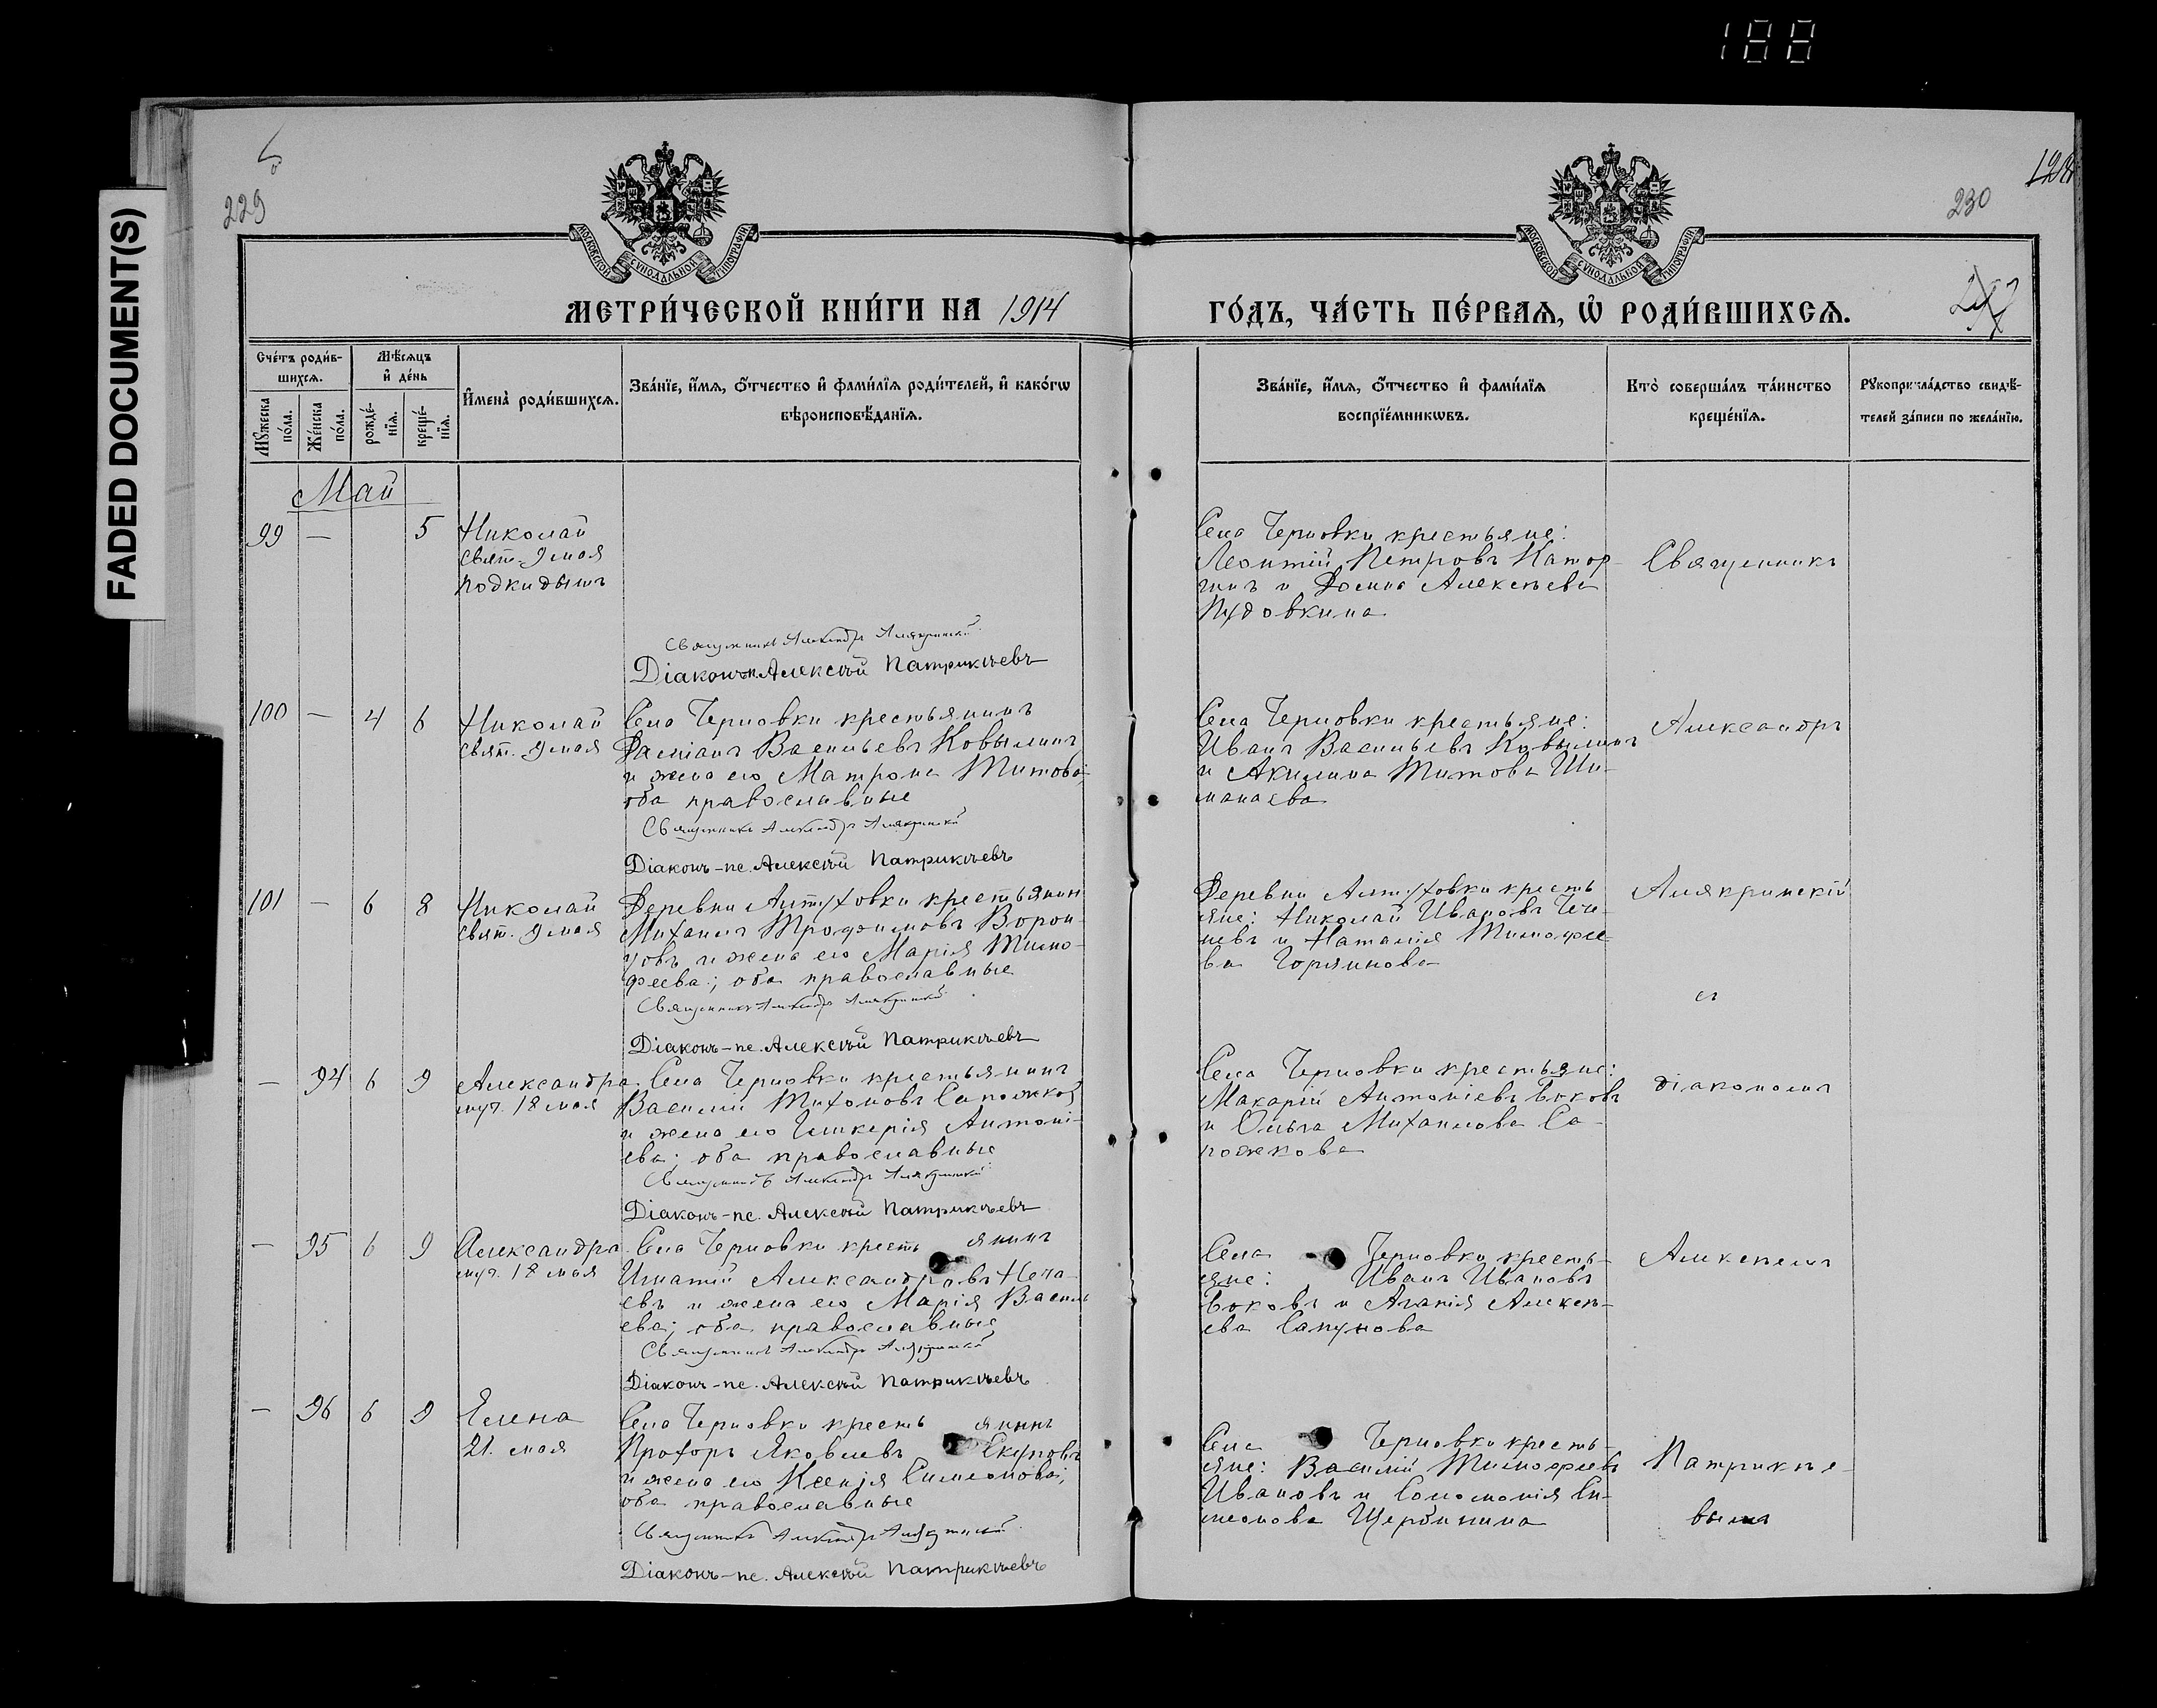 188
FADED DOCUMENT(S)
229
230
МОСКОВСКОЙ СУНОДАЛЬНОЙ ТИПОГРАФІИ
МОСКОВСКОЙ СУНОДАЛЬНОЙ ТИПОГРАФІИ
МЕТРИ́ЧЕСКОЙ КНИ́ГИ НА 1914
ГО́ДЪ, ЧА́СТЬ ПЕ́РВАЯ, Ѡ РОДИ́ВШИХСЯ.
Сче́тъ роди́в-
шихся.
Мѣ́сяцъ
и де́нь
Му́жеска
по́ла.
Же́нска
по́ла.
рожде́-
нїя.
креще́-
нїя.
Имена̀ роди́вшихся.
Зва́нїе, и́мя, о́тчество и фами́лїя роди́телей, и како́гѡ
вѣроисповѣ́данїя.
Зва́нїе, и́мя, о́тчество и фами́лїя
воспрїе́мникѡвъ.
Кто̀ соверша́лъ та́инство
креще́нїя.
Рукоприкла́дство свидѣ́-
телей за́писи по жела́нїю.
Май
99 — 5 Николай
свят. 9 мая
подкидышъ
Села Черновки крестьяне:
Леонтій Петровъ Катор-
гинъ и Домна Алексѣева
Пудовкина
Священникъ
Священникъ Александръ Алякринскій
Діаконъ-п. Алексѣй Патрикѣевъ
100 — 4 6 Николай
свят. 9 мая
Села Черновки крестьянинъ
Даміанъ Васильевъ Ковылинъ
и жена его Матрона Титова;
оба православные
Священникъ Александръ Алякринскій
Діаконъ-пс. Алексѣй Патрикѣевъ
Села Черновки крестьяне:
Иванъ Васильевъ Ковылинъ
и Акилина Титова Ши-
манаева
Александръ
101 — 6 8 Николай
свят. 9 мая
Деревни Алтуховки крестьянин
Михаилъ Трофимовъ Ворон-
цовъ и жена его Марія Тимо-
феева; оба православные
Священникъ Александръ Алякринскій
Діаконъ-пс. Алексѣй Патрикѣевъ
Деревни Алтуховки кресть
яне: Николай Ивановъ
невъ и Наталія Тимофее-
ва Горяинова
Алякринскій
съ
— 94 6 9 Александра
муч. 18 мая
Села Черновки крестьянинъ
Василій Тихоновъ Сапожков
и жена его Гликерія Антоні-
ева; оба православные
Священникъ Александръ Алякринскій
Діаконъ-пс. Алексѣй Патрикѣевъ
Села Черновки крестьяне:
Макарій Антоніевъ Боковъ
и Ольга Михаилова Са-
пожкова
діакономъ
— 95 6 9 Александра
муч. 18 мая
Села Черновки кресть янинъ
Игнатій Александровъ Неча-
евъ и жена его Марія Василь
ева; оба православные
Священникъ Александръ Алякринскій
Діаконъ-пс. Алексѣй Патрикѣевъ
Села Черновки кресть-
яне: Иванъ Ивановъ
Боковъ и Агапія Алексѣ-
ева Сапунова
Алексѣемъ
— 96 6 9 Елена
21. мая
Села Черновки кресть янинъ
Прохоръ Яковлевъ Скуповъ
и жена его Ксенія Симеонова;
оба православные
Священникъ Александръ Алякринскій
Діаконъ-пс. Алексѣй Патрикѣевъ
Села Черновки кресть-
яне: Василій Тимофеевъ
Ивановъ и Соломонія Си-
меонова Щербинина
Патрикѣе-
вымъ